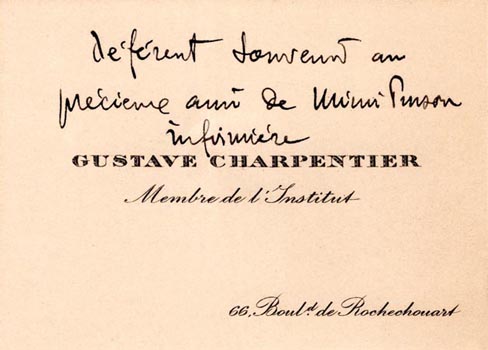 déférent souvenir au
précieux ami de Mimi Pinson
infirmière
GUSTAVE CHARPENTIER
Membre de l'Institut
66, Boul.d de Rochechouart